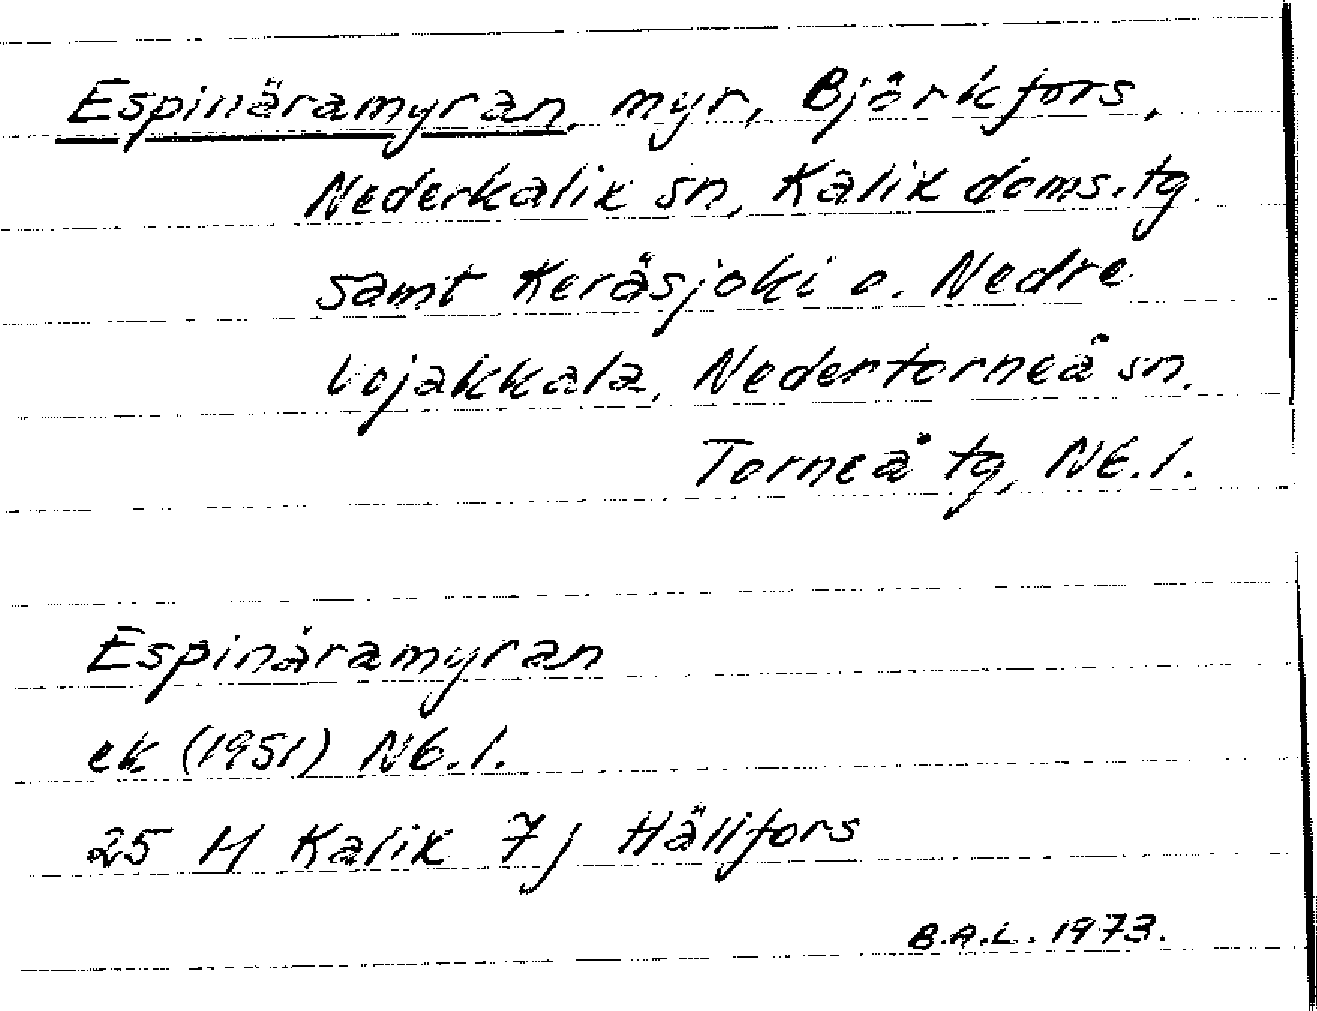 Espinäramyran, myr, Björkfors,
Nederkalix sn, Kalix doms.tg.
samt Keräsjoki o. Nedre
Vojakkala, Nedertorneå sn.
Torneå tg, Nb.l.
Espinäramyran
ek (1951) Nb.l.
25 M Kalix 7j Hällfors
B.A.L. 1973.